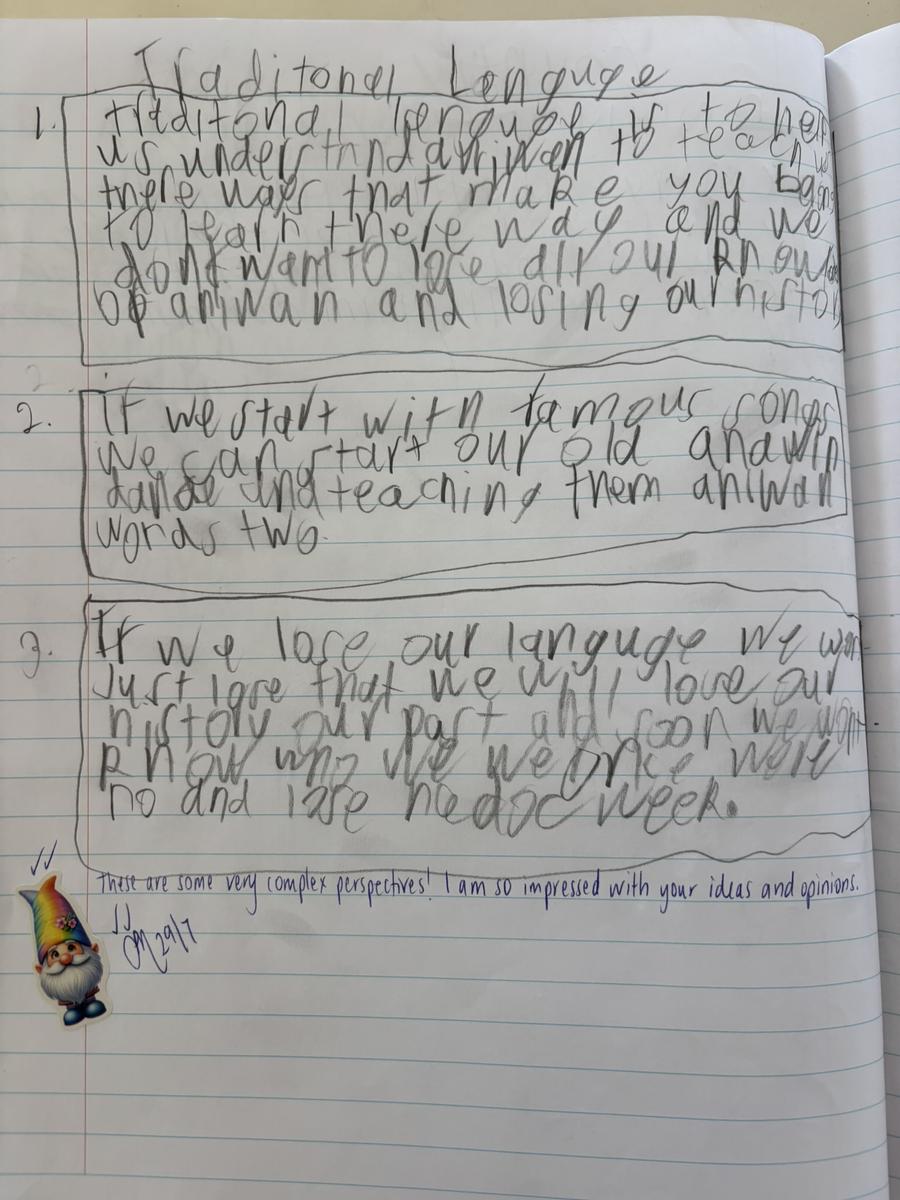 Traditonal Lenguge
1. traditonal lenguge is to help
us understnd aniwan to teach us
there ways that make you begin
to learn there way and we
dont want to lose all our
of aniwan and losing our histor
2. If we start with famous songs
We can start our old anawin
dance and teaching them aniwan
words two.
3. If we lose our languge we wont
Just lose that we will lose our
history our past and soon we wont
know who we we once were
no and lose nadoc week.
These are some very complex perspectives! I am so impressed with your ideas and opinions.
29/7